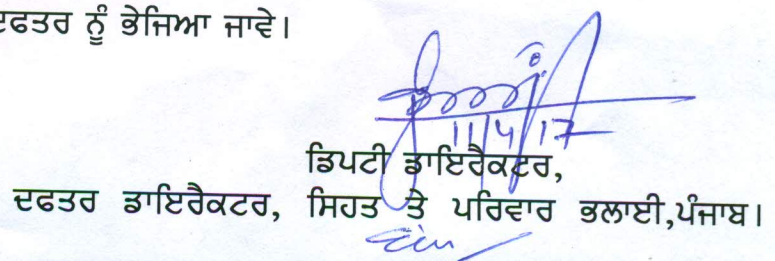 ਦਫਤਰ ਨੂੰ ਭੇਜਿਆ ਜਾਵੇ।
11/4/17
ਡਿਪਟੀ ਡਾਇਰੈਕਟਰ,
ਦਫਤਰ ਡਾਇਰੈਕਟਰ, ਸਿਹਤ ਤੇ ਪਰਿਵਾਰ ਭਲਾਈ,ਪੰਜਾਬ।